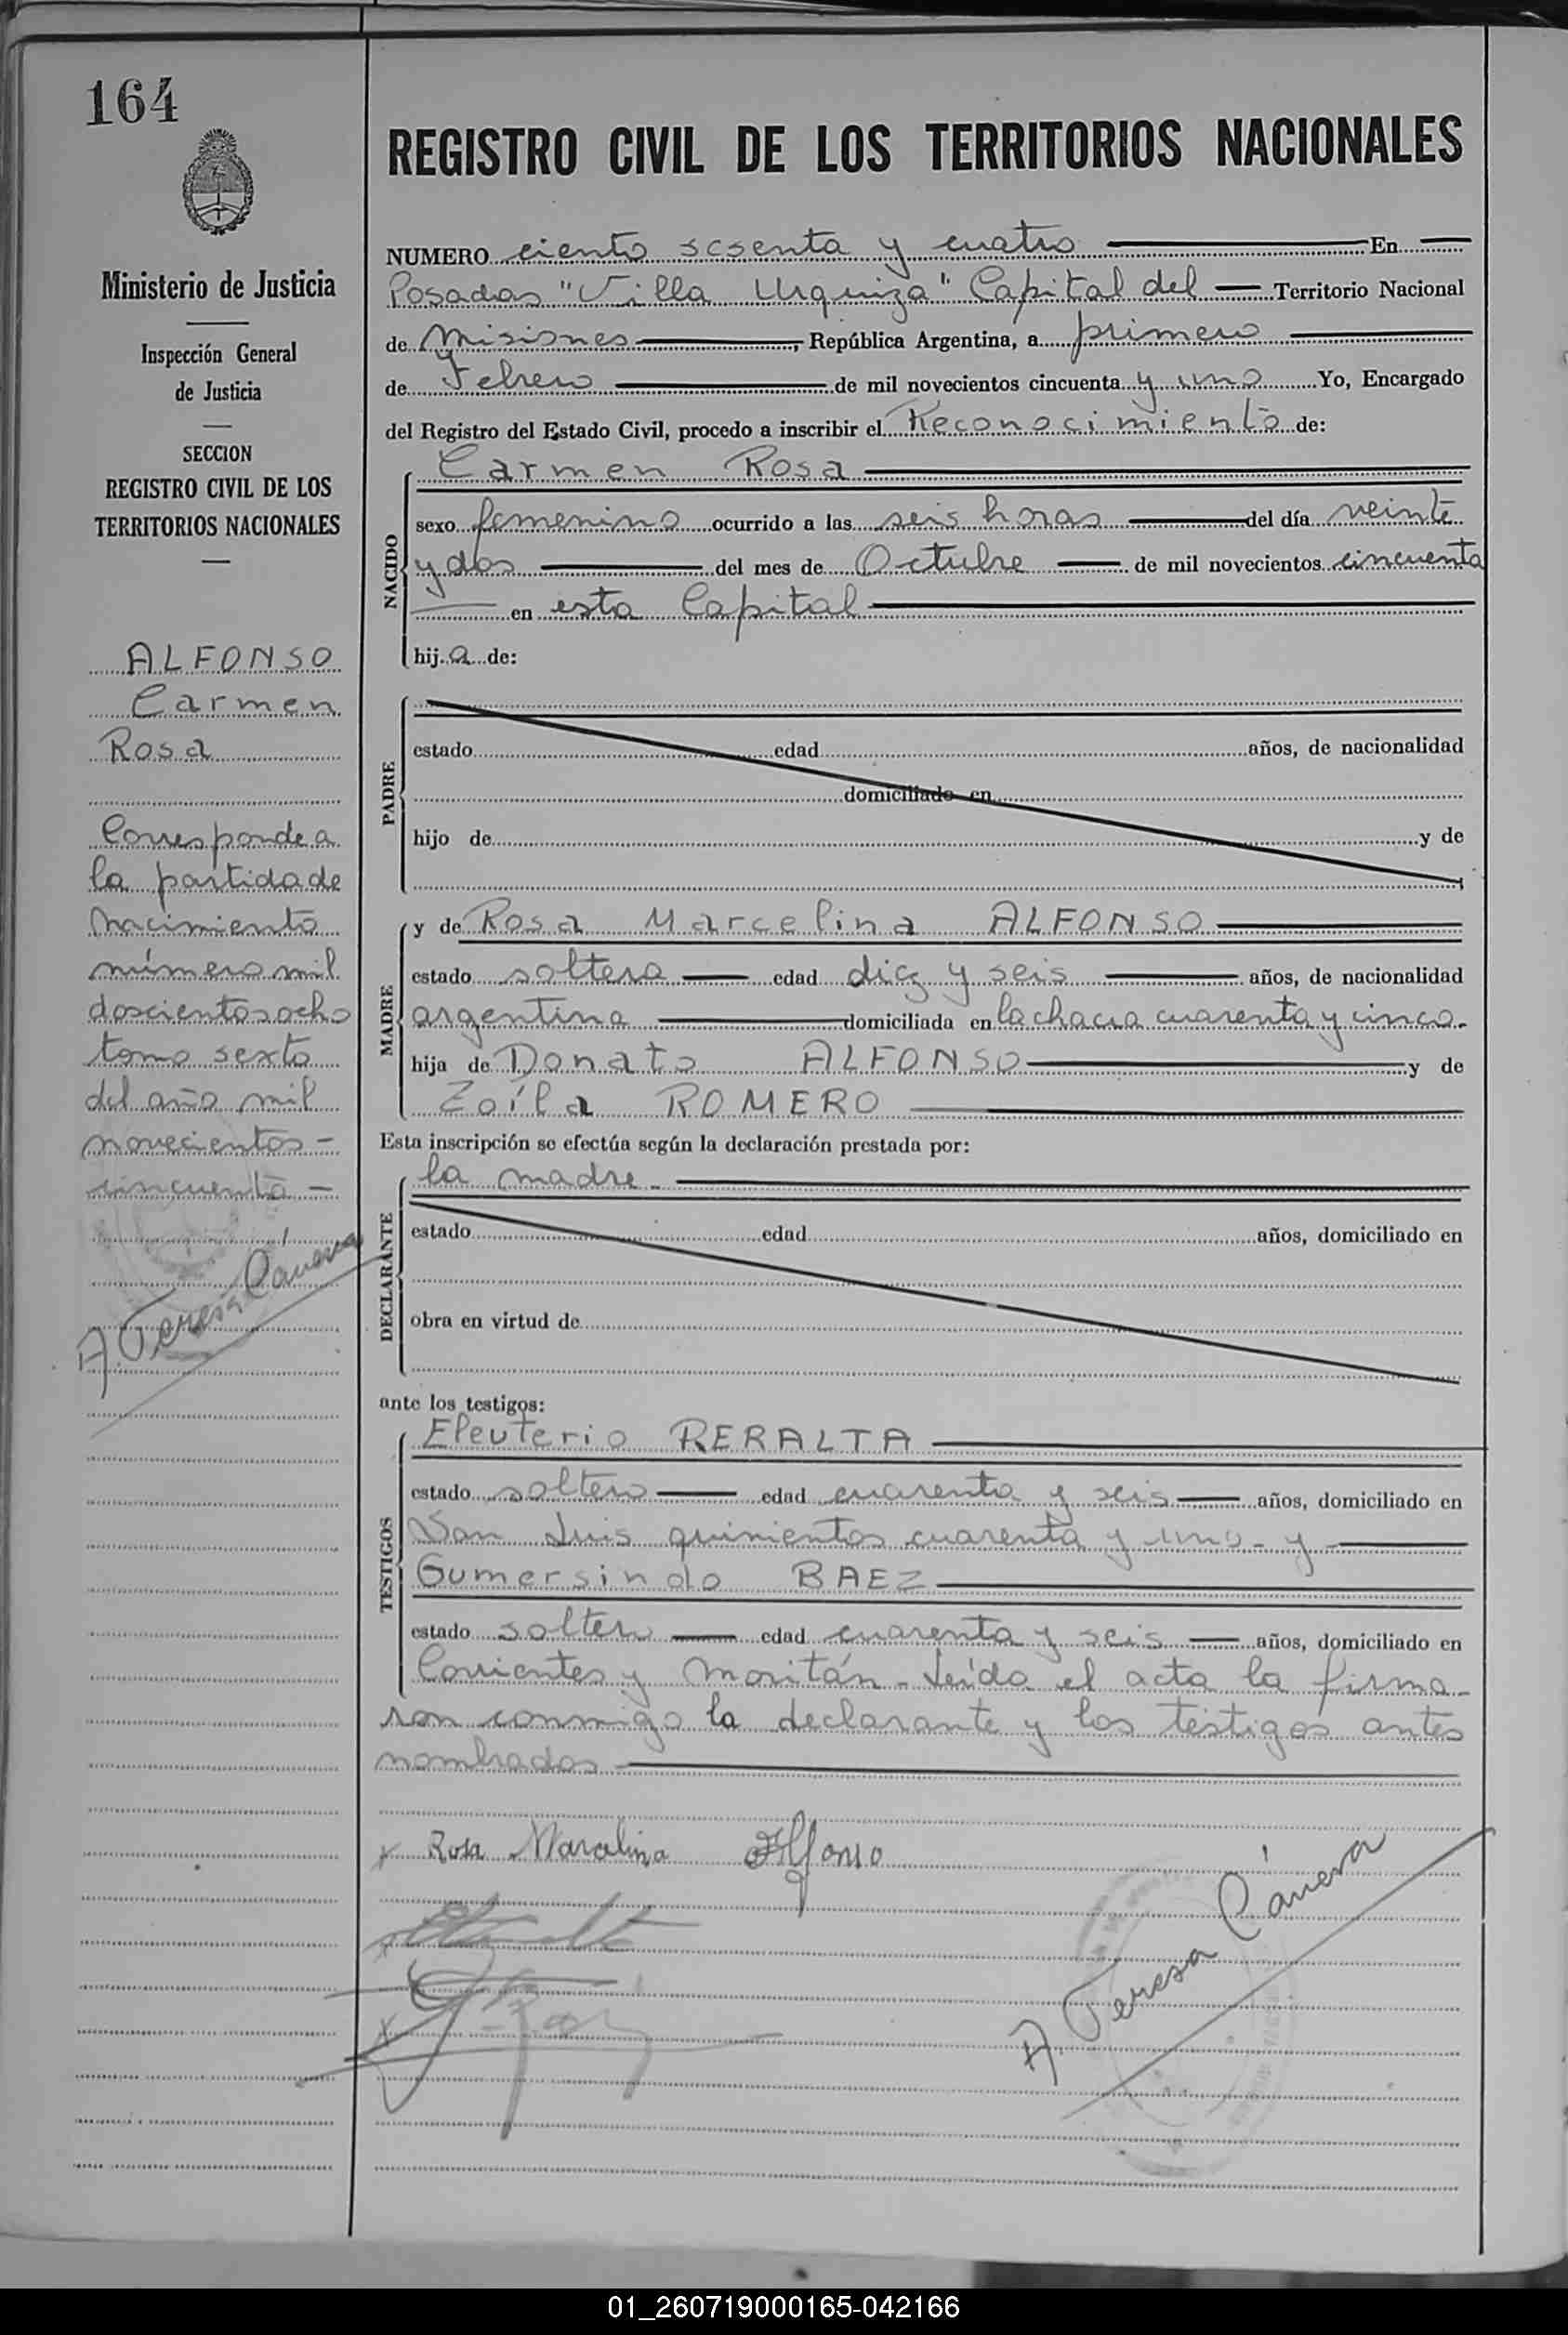 164
Ministerio de Justicia
Inspección General
de Justicia
SECCION
REGISTRO CIVIL DE LOS
TERRITORIOS NACIONALES
ALFONSO
Carmen
Rosa
Corresponde a
la partida de
nacimiento
número mil
doscientos ocho
tomo sexto
del año mil
novecientos -
cincuenta -
A. Teresa Cánova
REGISTRO CIVIL DE LOS TERRITORIOS NACIONALES
NUMERO ciento sesenta y cuatro En
Posadas "Villa Urquiza" Capital del Territorio Nacional
de Misiones, República Argentina, a primero
de Febrero de mil novecientos cincuenta y uno Yo, Encargado
del Registro del Estado Civil, procedo a inscribir el Reconocimiento de:
NACIDO
Carmen Rosa
sexo femenino ocurrido a las seis horas del día veinte
y dos del mes de Octubre de mil novecientos cincuenta
en esta Capital
hija de:
PADRE
estado edad años, de nacionalidad
domiciliado en
hijo de y de
MADRE
y de Rosa Marcelina ALFONSO
estado soltera edad diez y seis años, de nacionalidad
argentina domiciliada en la chacra cuarenta y cinco.
hija de Donato ALFONSO y de
Zoíla ROMERO
Esta inscripción se efectúa según la declaración prestada por:
DECLARANTE
la madre.
estado edad años, domiciliado en
obra en virtud de
ante los testigos:
TESTIGOS
Eleuterio RERALTA
estado soltero edad cuarenta y seis años, domiciliado en
San Luis quinientos cuarenta y uno - y
Gumersindo BAEZ
estado soltero edad cuarenta y seis años, domiciliado en
Corrientes y Moritán - Leída el acta la firma-
ron conmigo la declarante y los testigos antes
nombrados
x Rosa Marcelina Alfonso
A. Teresa Cánova
01_260719000165-042166